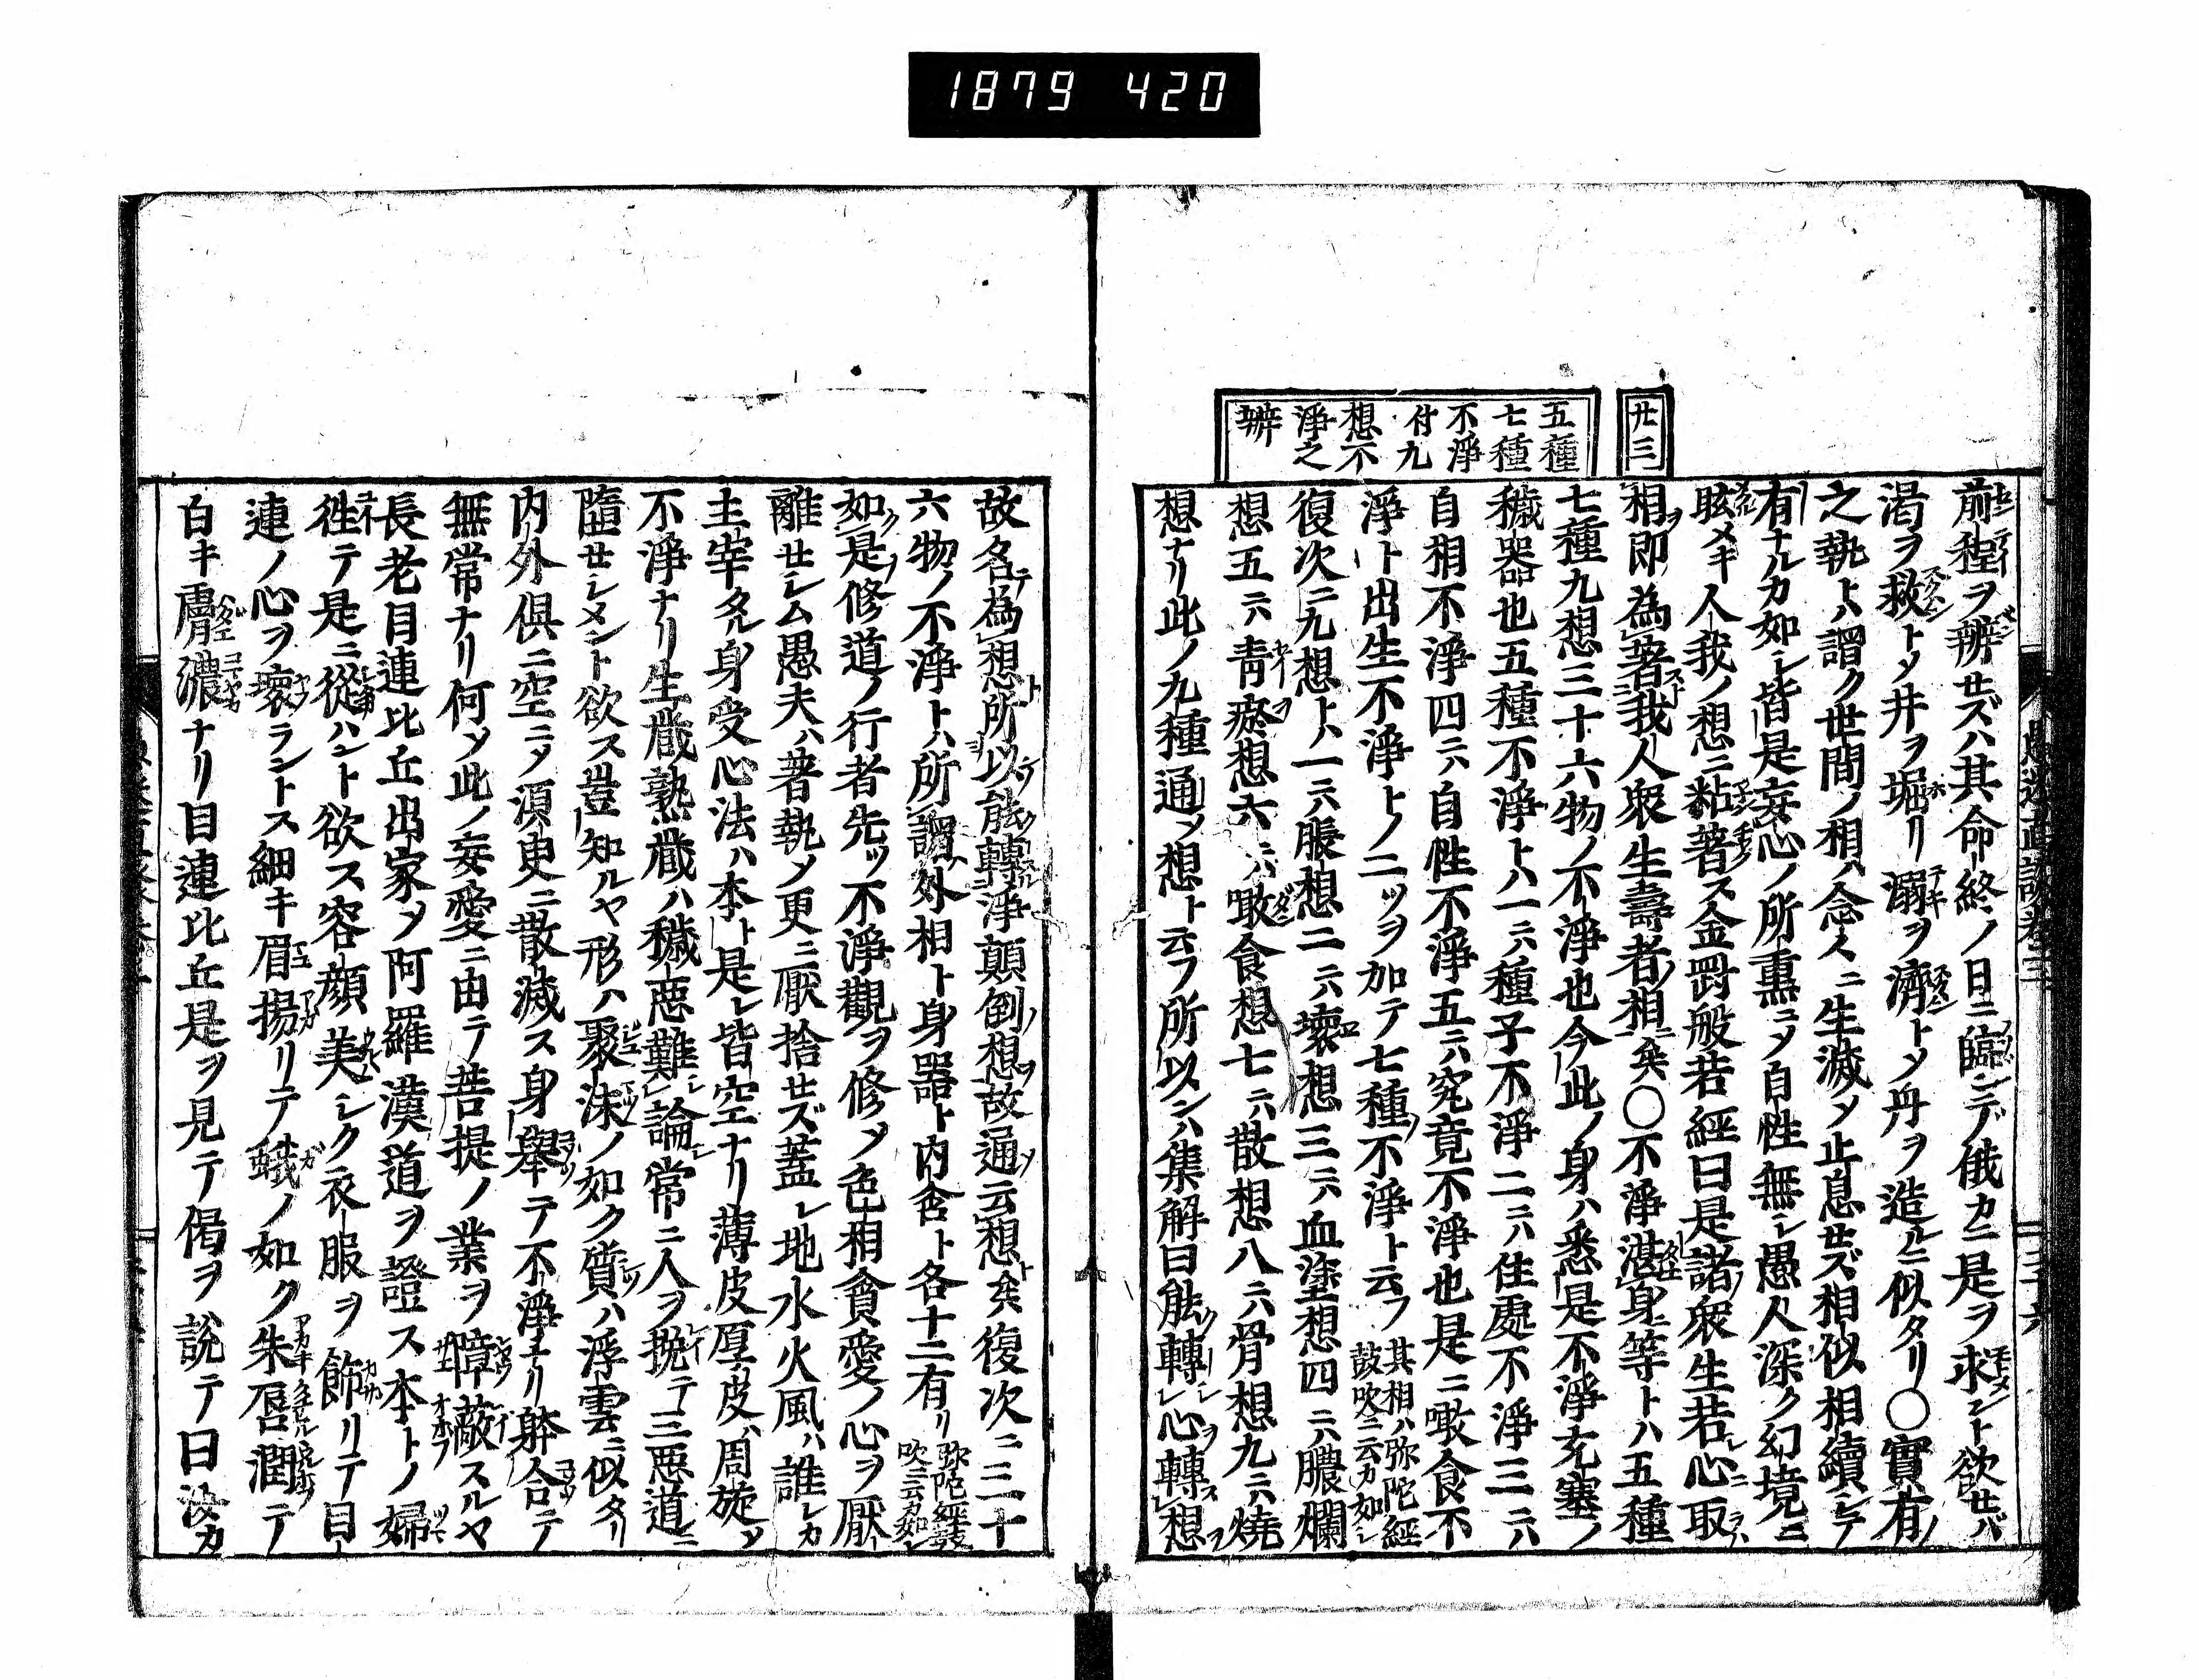 1879 420
廿三
五種
七種
不淨
付九
想不
淨之
辨
前程ヲ辨セズハ其命終ノ日ニ臨ンデ俄カニ是ヲ求メント欲セバ
渇ヲ救トメ井ヲ堀リ溺ヲ濟トメ丹ヲ造ルニ似タリ〇實有ノ
之執トハ謂ク世間ノ相ハ念々ニ生滅メ止息セズ相似相續シテ
有ナルカ如シ皆是妄心ノ所熏ニメ自性無シ愚人深ク幻境ニ
眩メキ人我ノ想ニ粘著ス金罸般若經曰是諸衆生若心取
相即為著我人衆生壽者相矣〇不淨湛身等トハ五種
七種九想三十六物ノ不淨也今此ノ身ハ悉是不淨充塞ノ
穢器也五種不淨トハ一ニハ種子不淨二ニハ住處不淨三ニハ
自相不淨四ニハ自性不淨五ニハ究竟不淨也是ニ噉食不
淨ト出生不淨トノ二ッヲ加テ七種不淨ト云フ其相ハ弥陀經
鼓吹ニ云カ如シ
復次ニ九想トハ一ニハ脹想二ニハ壞想三ニハ血塗想四ニハ膿爛
想五ニハ靑瘀想六ニハ噉食想七ニハ散想八ニハ骨想九ニハ燒
想ナリ此ノ九種通ッ想ト云フ所以ンハ集解曰能轉心轉想
故名為想所以能轉淨顛倒想故通云想矣復次ニ三十
六物ノ不淨トハ所謂外相ト身器ト内含ト各十二有リ弥陀經鼓
吹ニ云カ如シ
如是修道ノ行者先ッ不淨觀ヲ修メ色相貪愛ノ心ヲ厭
離セシム愚夫ハ著執メ更ニ厭捨セズ蓋シ地水火風ハ誰レカ
主宰タル身受心法ハ本ト是レ皆空ナリ薄皮厚皮ハ周旋メ
不淨ナリ生藏熟藏ハ穢悪難論常ニ人ヲ挽テ三悪道ニ
隨セシメント欲ス豈知ルヤ形ハ聚沫ノ如ク質ハ浮雲ニ似タリ
内外倶ニ空ニメ須臾ニ散滅ス身舉テ不淨ナリ躰合テ
無常ナリ何ソ此ノ妄愛ニ由テ菩提ノ業ヲ障蔽スルヤ
長老目連比丘出家メ阿羅漢道ヲ證ス本トノ婦
徃テ是ニ從ハント欲ス容顔美シク衣服ヲ飾リテ目
連ノ心ヲ壞ラントス細キ眉揚リテ蛾ノ如ク朱唇潤テ
白キ膚濃ナリ目連比丘是ヲ見テ偈ヲ說テ曰汝カ